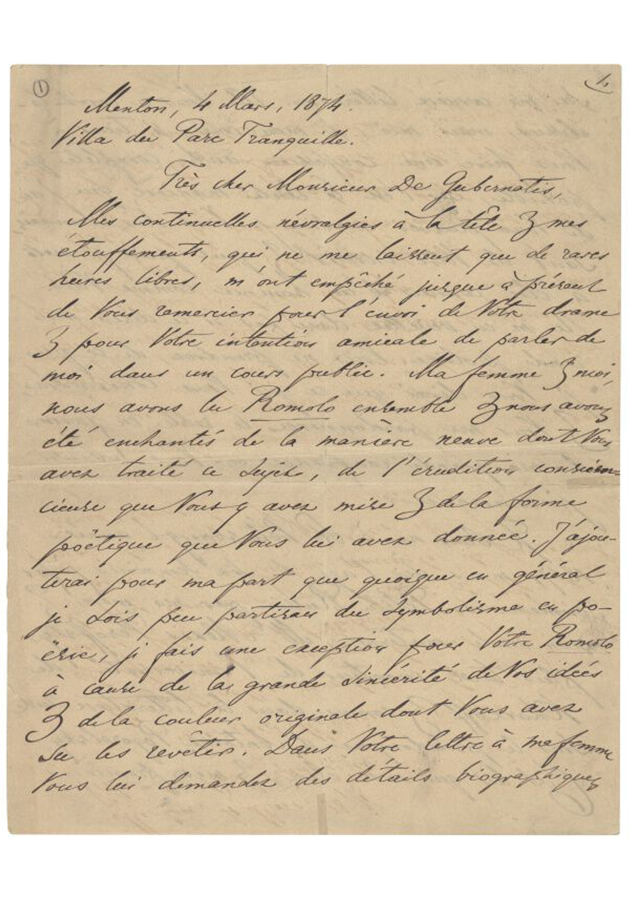 ① 1.
Menton, 4 Mars, 1874.
Villa du Parc Tranquille.
Très cher Monsieur De Gubernatis,
Mes continuelles névralgies à la tête & mes
étouffements, qui ne me laissent que de rares
heures libres, m'ont empêché jusque à présent
de Vous remercier pour l'envoi de Votre drame
& pour Votre intention amicale de parler de
moi dans un cours public. Ma femme & moi,
nous avons lu Romolo ensemble & nous avons
été enchantés de la manière neuve dont Vous
avez traité ce sujet, de l'érudition conscien=
cieuse que Vous y avez mise & de la forme
poëtique que Vous lui avez donnée. J'ajou-
terai pour ma part que quoique en général
je sois peu partisan du Symbolisme en po-
ësie, je fais une exception pour Votre Romolo
à cause de la grande sincérité de Vos idées
& de la couleur originale dont Vous avez
su les revêtir. Dans Votre lettre à ma femme
Vous lui demandez des détails biographiques